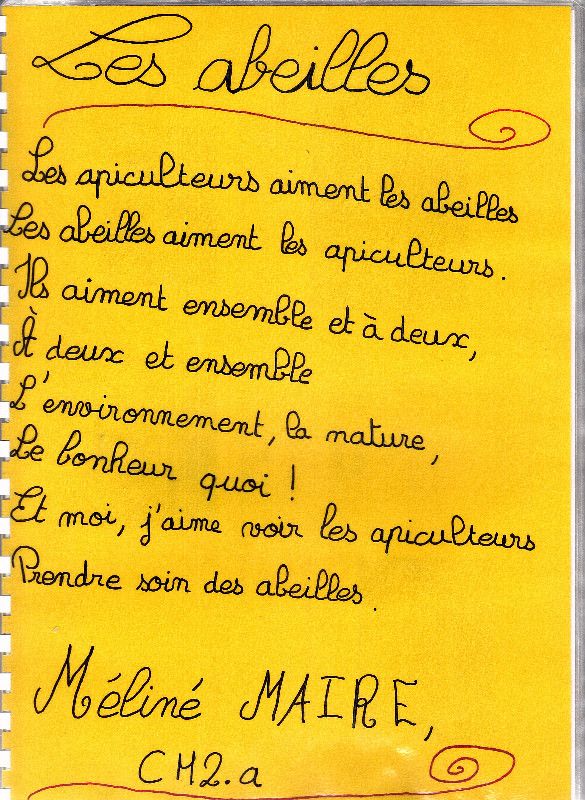 Les abeilles
Les apiculteurs aiment les abeilles
Les abeilles aiment les apiculteurs.
Ils aiment ensemble et à deux,
À deux et ensemble
L'environnement, la nature,
Le bonheur quoi !
Et moi, j'aime voir les apiculteurs
Prendre soin des abeilles.
Méliné MAIRE,
CM2.a